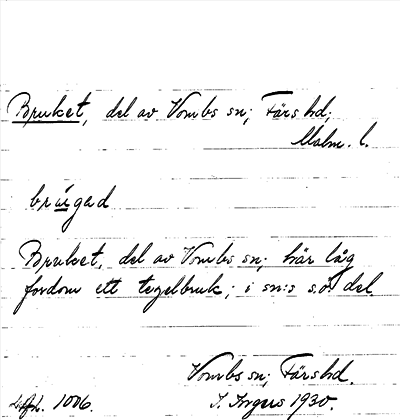 Bruket, del av Vombs sn; Färs hd;
Malm. l.
brúgad
Bruket, del av Vombs sn; här låg
fordom ett tegelbruk; i sn:s s.ö. del.
Vombs sn; Färs hd.
1006. I. Ingers 1930.